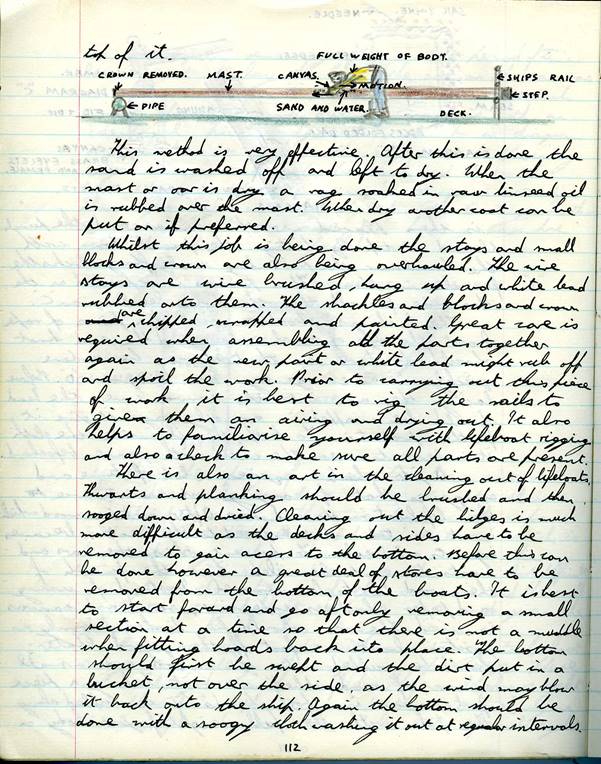 top of it.
FULL WEIGHT OF BODY.
CROWN REMOVED. MAST. CANVAS. MOTION. SHIPS RAIL
PIPE SAND AND WATER. DECK. STEP.
This method is very effective. After this is done the
sand is washed off and left to dry. When the
mast or oar is dry a rag soaked in raw linseed oil
is rubbed over the mast. When dry another coat can be
put on if preferred.
Whilst this job is being done the stays and small
blocks and crown are also being overhauled. The wire
stays are wire brushed, hung up and white lead
rubbed onto them. The shackles and blocks and crown
are chipped, wrapped and painted. Great care is
required when assembling all the parts together
again as the new paint or white lead might rub off
and spoil the work. Prior to carrying out this piece
of work it is best to rig the sails to
give them an airing and drying out. It also
helps to familiarise yourself with lifeboat rigging
and also a check to make sure all parts are present.
There is also an art in the cleaning out of lifeboats.
Thwarts and planking should be brushed and then
sooged down and dried. Cleaning out the bilges is much
more difficult as the decks and sides have to be
removed to gain acess to the bottom. Before this can
be done however a great deal of stores have to be
removed from the bottom of the boats. It is best
to start forard and go aft only removing a small
section at a time so that there is not a muddle
when fitting boards back into place. The bottom
should first be swept and the dirt put in a
bucket, not over the side, as the wind may blow
it back onto the ship. Again the bottom should be
done with a soogy cloth washing it out at regular intervals.
112